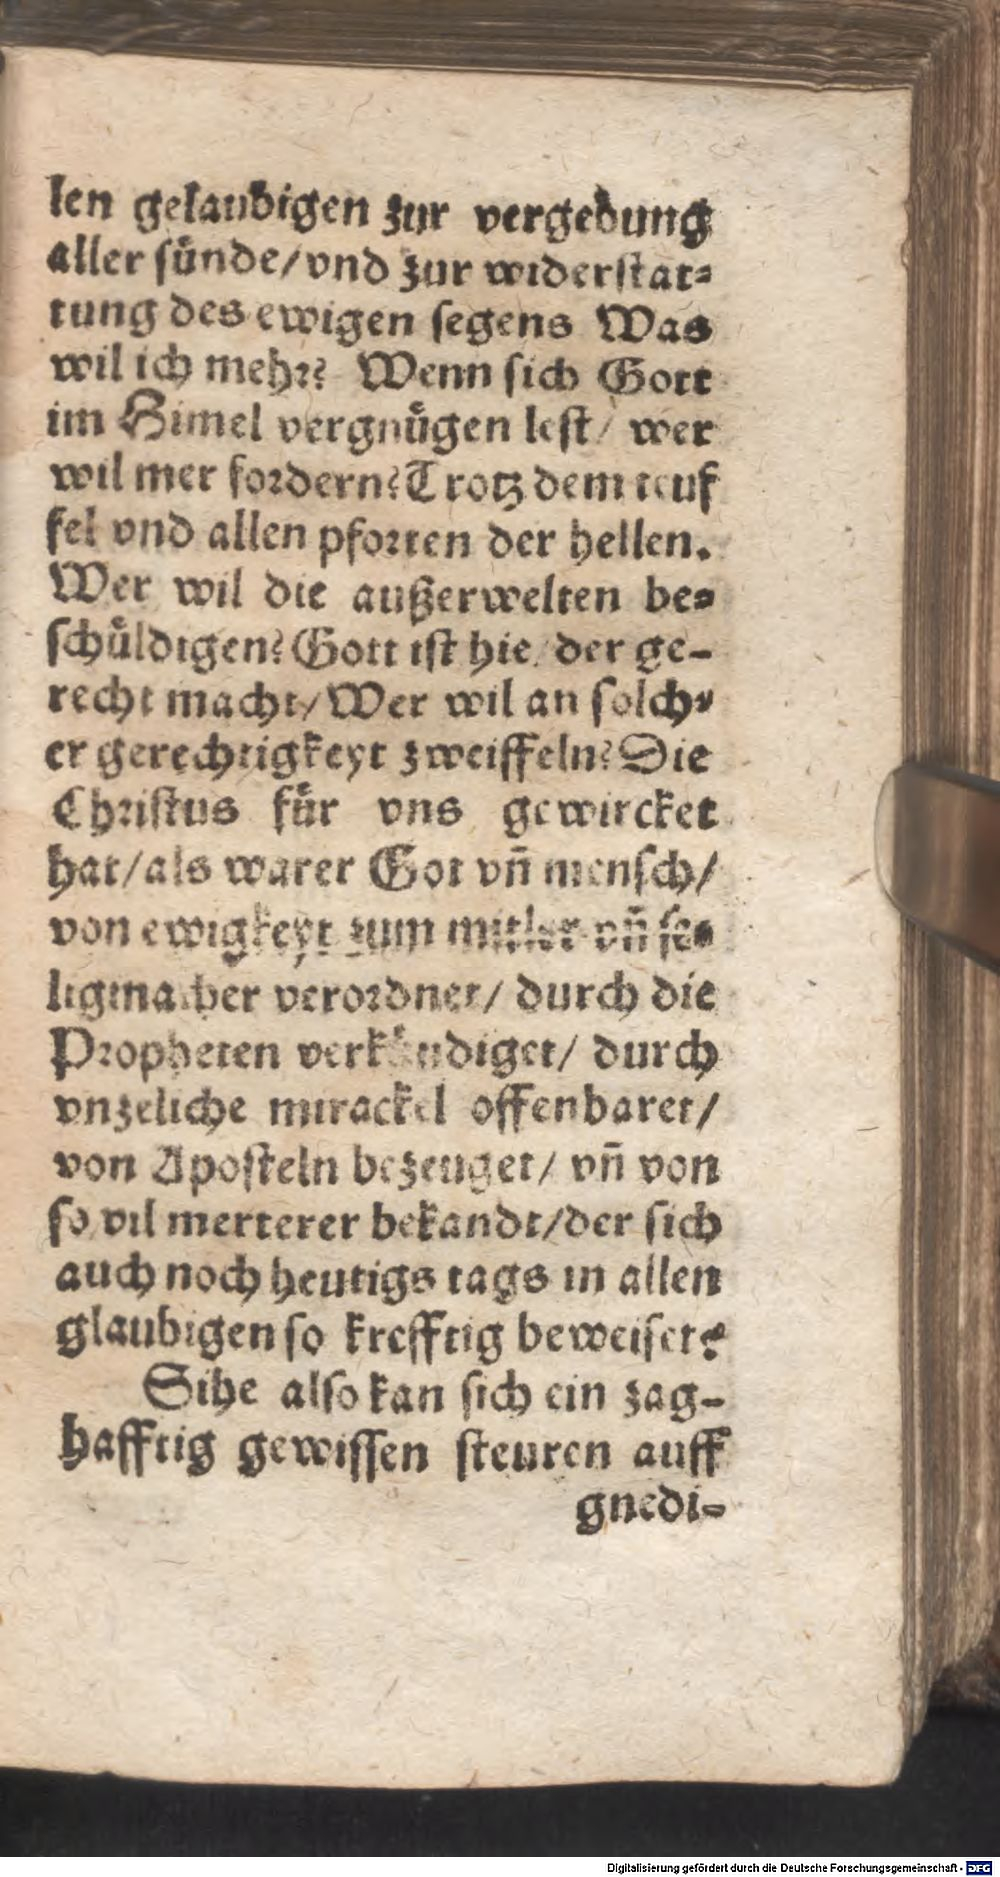 len gelaubigen zur vergebung
aller sünde/vnd zur widerstat⸗
tung des ewigen segens Was
wil ich mehr? Wenn sich Gott
im Himel vergnügen lest/ wer
wil mer fordern? Trotz dem teuf
fel vnd allen pforten der hellen.
Wer wil die außerwelten be⸗
schüldigen? Gott ist hie/ der ge⸗
recht macht/ Wer wil an solch⸗
er gerechtigkeyt zweiffeln? Die
Christus für vns gewircket
hat/als warer Got vñ mensch/
von ewigkeyt zum mitler vñ se⸗
ligmacher verordnet/ durch die
Propheten verkündiget/ durch
vnzeliche mirackel offenbaret/
von Aposteln bezeuget/ vñ von
so vil merterer bekandt/der sich
auch noch heutigs tags in allen
glaubigen so krefftig beweiset?
Sihe also kan sich ein zag⸗
hafftig gewissen steuren auff
gnedi⸗
Digitalisierung gefördert durch die Deutsche Forschungsgemeinschaft - DFG